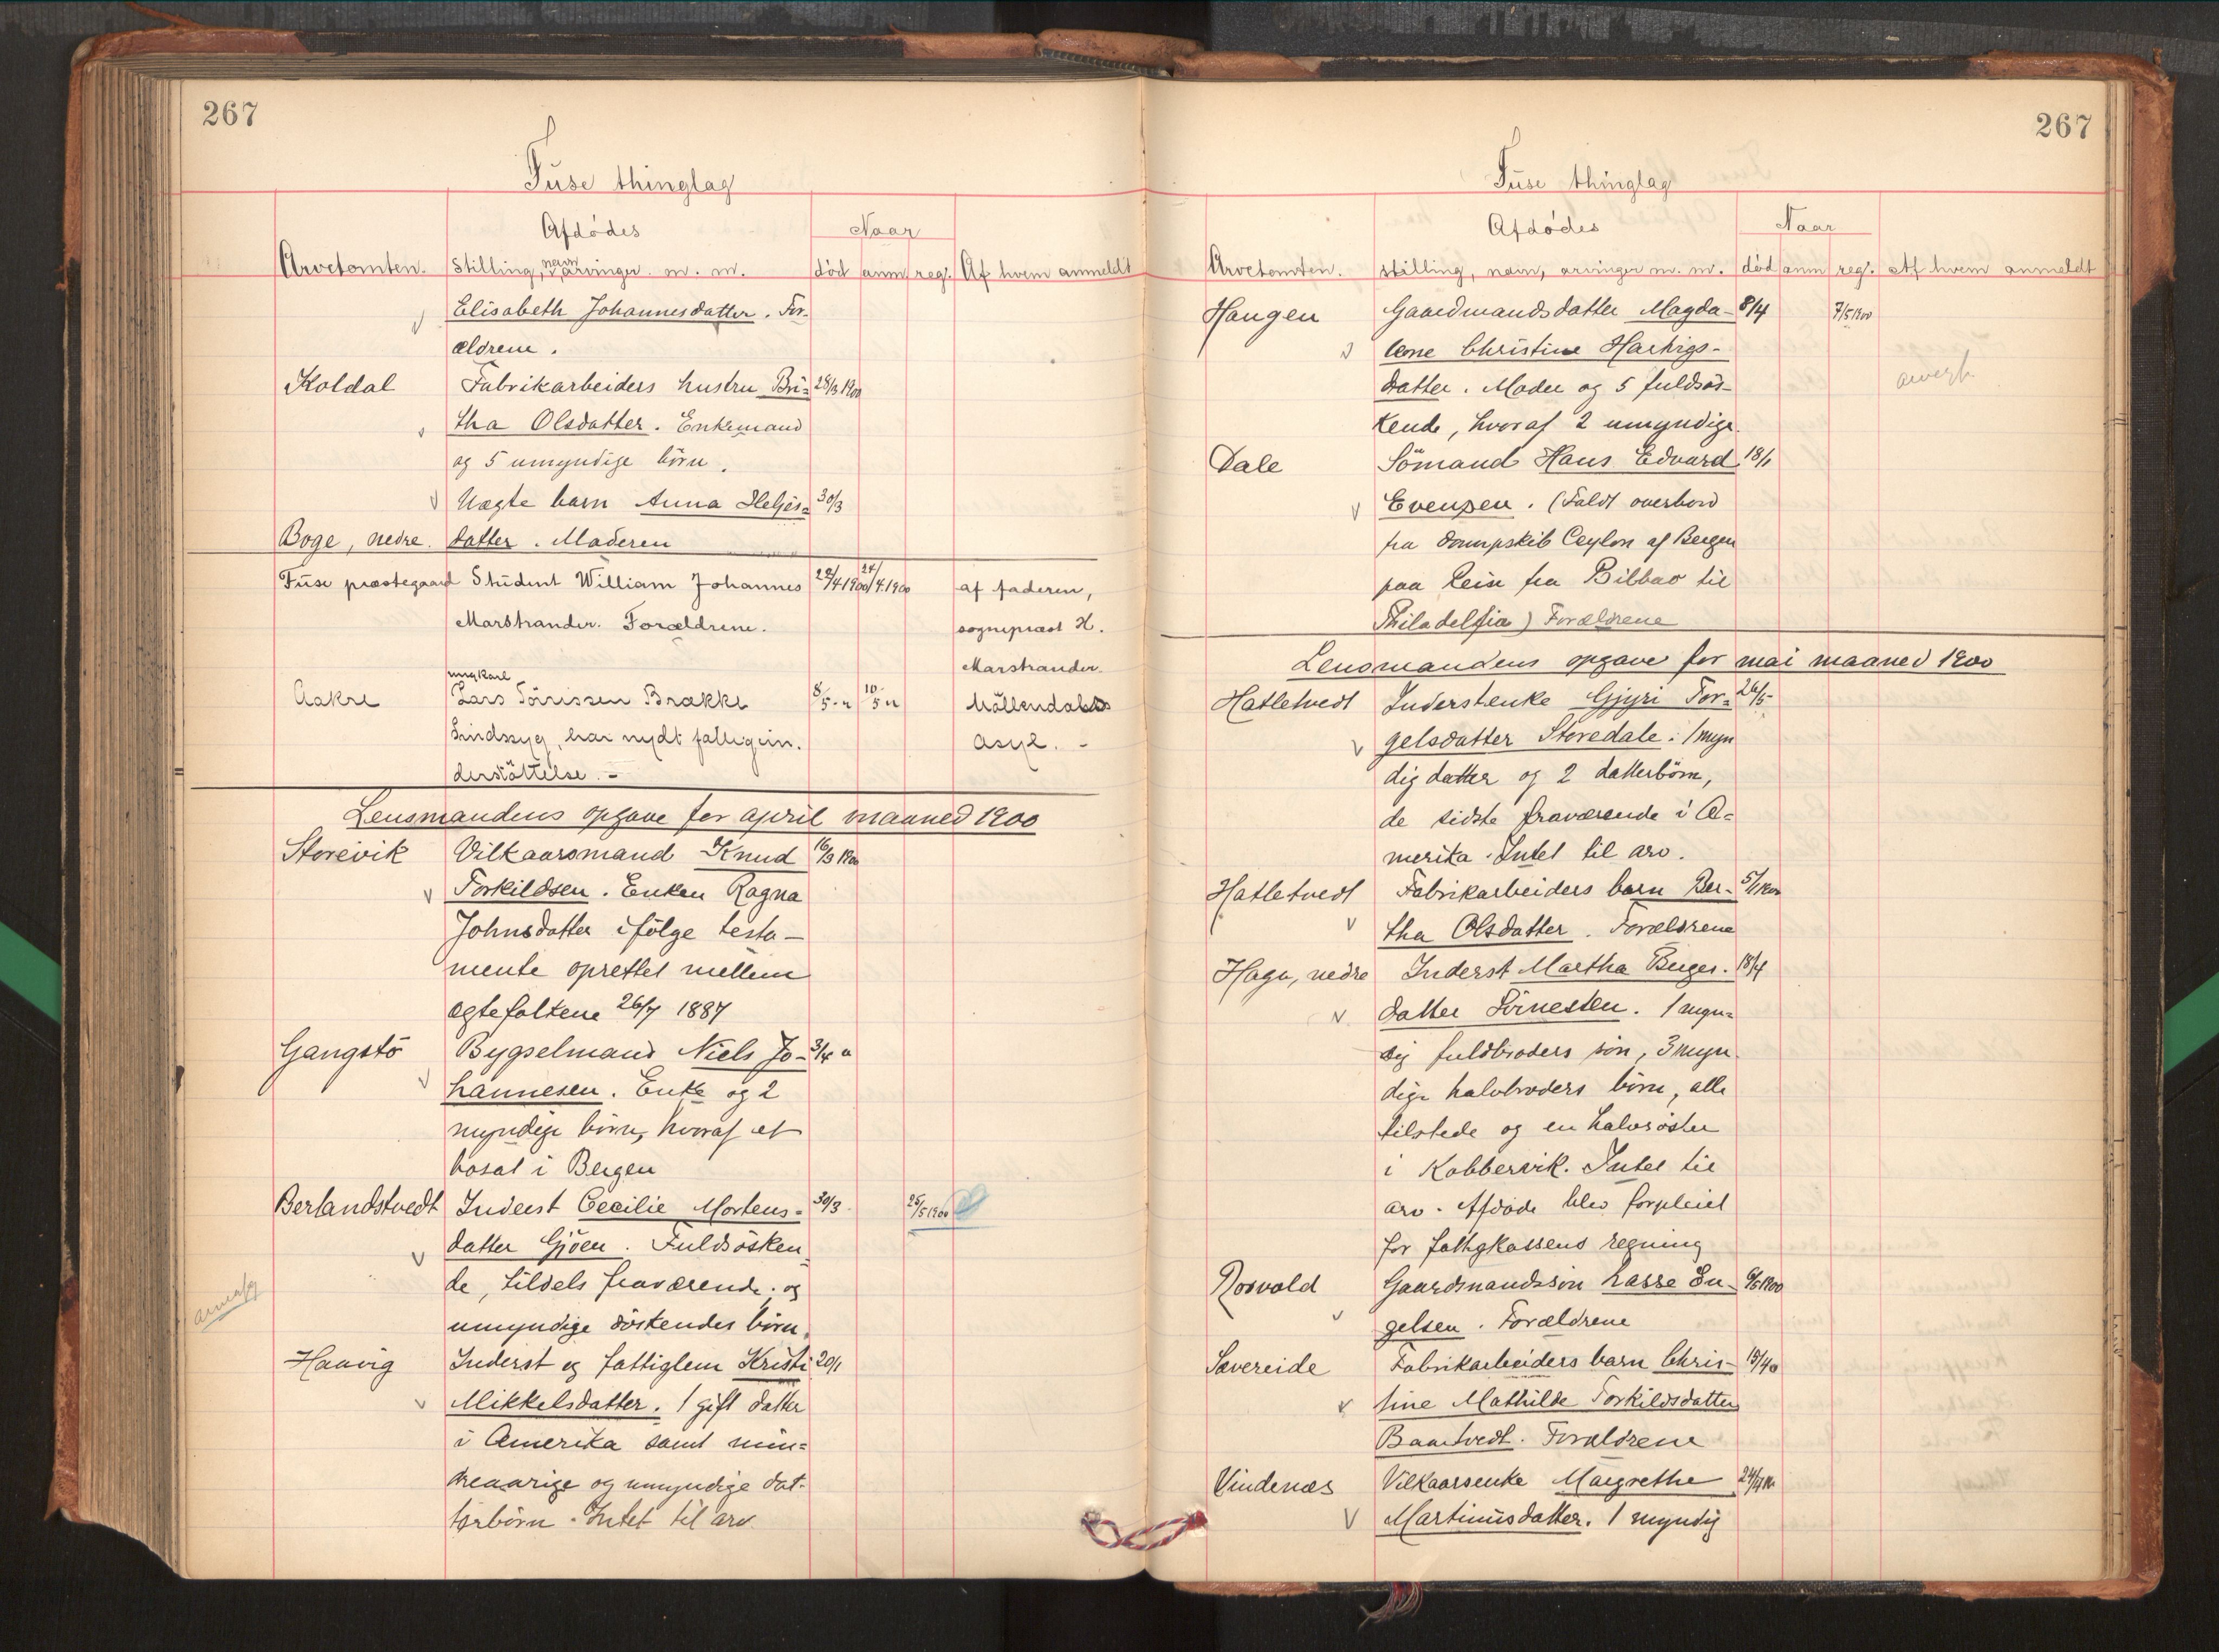 267
Fuse thinglag
Afdödes
Naar
Arvetomten. Stilling, navn, arvinger m. m. död anm reg. Af hvem anmeldt
Elisabeth Johannesdatter. For-
ældrene.
Koldal Fabrikarbeiders hustru Bri= 28/3 1900
tha Olsdatter. Enkemand
og 5 umyndige börn.
Uægte barn Anna Helges= 30/3
Boge, nedre. datter. Moderen
Fuse præstegaard Student William Johannes 22/4 1900 24/4 1900 af faderen,
Marstrander. Forældrene. sognepræst H.
Marstrander.
ungkarl
Aakre Lars Törrissen Brække 8/5 - " 10/5 " Möllendals
Sindssyg, har nydt fattigun- asyl. -
derstöttelse. -
Lensmandens opgave for april maaned 1900
Storevik Vilkaarsmand Knud 16/3 1900
Torkildsen. Enken Ragna
Johnsdatter ifölge testa-
mente oprettet mellem
ægtefolkene 26/7 1887
Gangstö Bygselmand Niels Jo- 3/4 "
hannesen. Enke og 2
myndige börn, hvoraf et
bosat i Bergen
Berlandstvedt Inderst Cecilie Mortens= 30/3 25/5 1900
datter Gjöen. Fuldsösken
de, tildels fraværende, og
umyndige söskendes börn.
Haavig Inderst og fattiglem Kristi 20/1
Mikkelsdatter. 1 gift datter
i Amerika samt min=
dreaarige og umyndige dat-
terbörn. Intet til arv.
267
Fuse thinglag
Afdödes
Naar
Arvetomten. stilling, navn, arvinger m. m. död anm reg. Af hvem anmeldt
Haugen Gaardmandsdatter Magda- 8/4 7/5 1900
lene Christine Hartvigs-
datter. Moder og 5 fuldsös-
kende, hvoraf 2 umyndige.
Dale Sömand Hans Edvard 18/1
Evensen. (Faldt overbord
fra dampskib Ceylon af Bergen
paa reise fra Bilbao til
Philadelfia) Forældrene
Lensmandens opgave for mai maaned 1900
Hatletvedt Inderstenke Gjyri Tor= 26/5
gelsdatter Storedale. 1 myn
dig datter og 2 datterbörn,
de sidste fraværende i A=
merika. Intet til arv.
Hatletvedt Fabrikarbeiders barn Ber- 5/1 1900
tha Olsdatter. Forældrene
Haga, nedre Inderst Martha Berges. 18/4
datter Sörnesten. 1 myn=
dig fuldbroders sön, 3 myn
dige halvbroders börn, alle
tilstede og en halvsöster
i Kobbervik. Intet til
arv. Afdöde blev forpleiet
for fattigkassens regning
Rosvold Gaardmandssön Lasse En- 6/5 1900
gelsen. Forældrene
Sævereide Fabrikarbeiders barn Chris- 15/4
tine Mathilde Torkildsdatter
Baartvedt. Forældrene
Vindenæs Vilkaarsenke Margrethe 24/4
Martinusdatter. 1 myndig